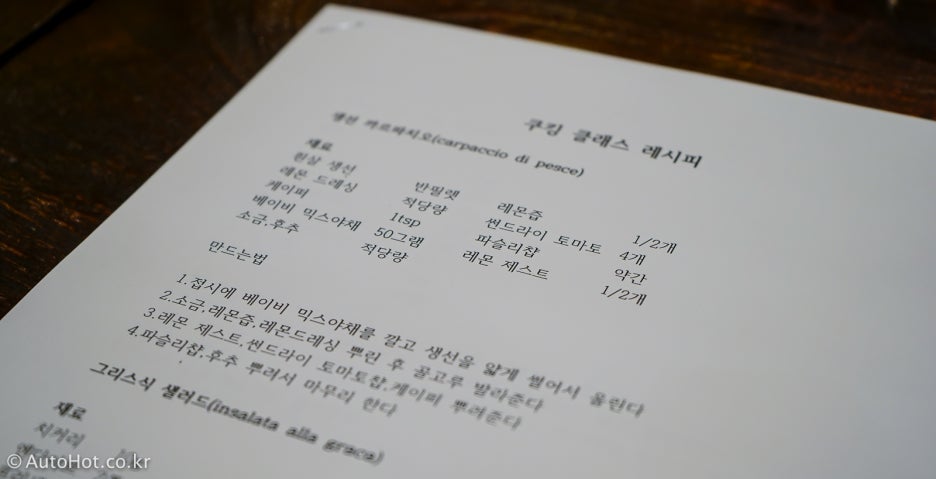 쿠킹 클래스 레시피
생선 카르파치오(carpaccio di pesce)
재료
흰살 생선 반필렛 레몬즙 1/2개
레몬 드레싱 적당량 썬드라이 토마토 4개
케이퍼 1tsp 파슬리찹 약간
베이비 믹스야채 50그램 레몬 제스트 1/2개
소금,후추 적당량
만드는법
1.접시에 베이비 믹스야채를 깔고 생선을 얇게 썰어서 올린다
2.소금,레몬즙,레몬드레싱 뿌린 후 골고루 발라준다
3.레몬 제스트,썬드라이 토마토찹,케이퍼 뿌려준다
4.파슬리찹,후추 뿌려서 마무리 한다
그리스식 샐러드(insalata alla graca)
재료
치커리
© AutoHot.co.kr